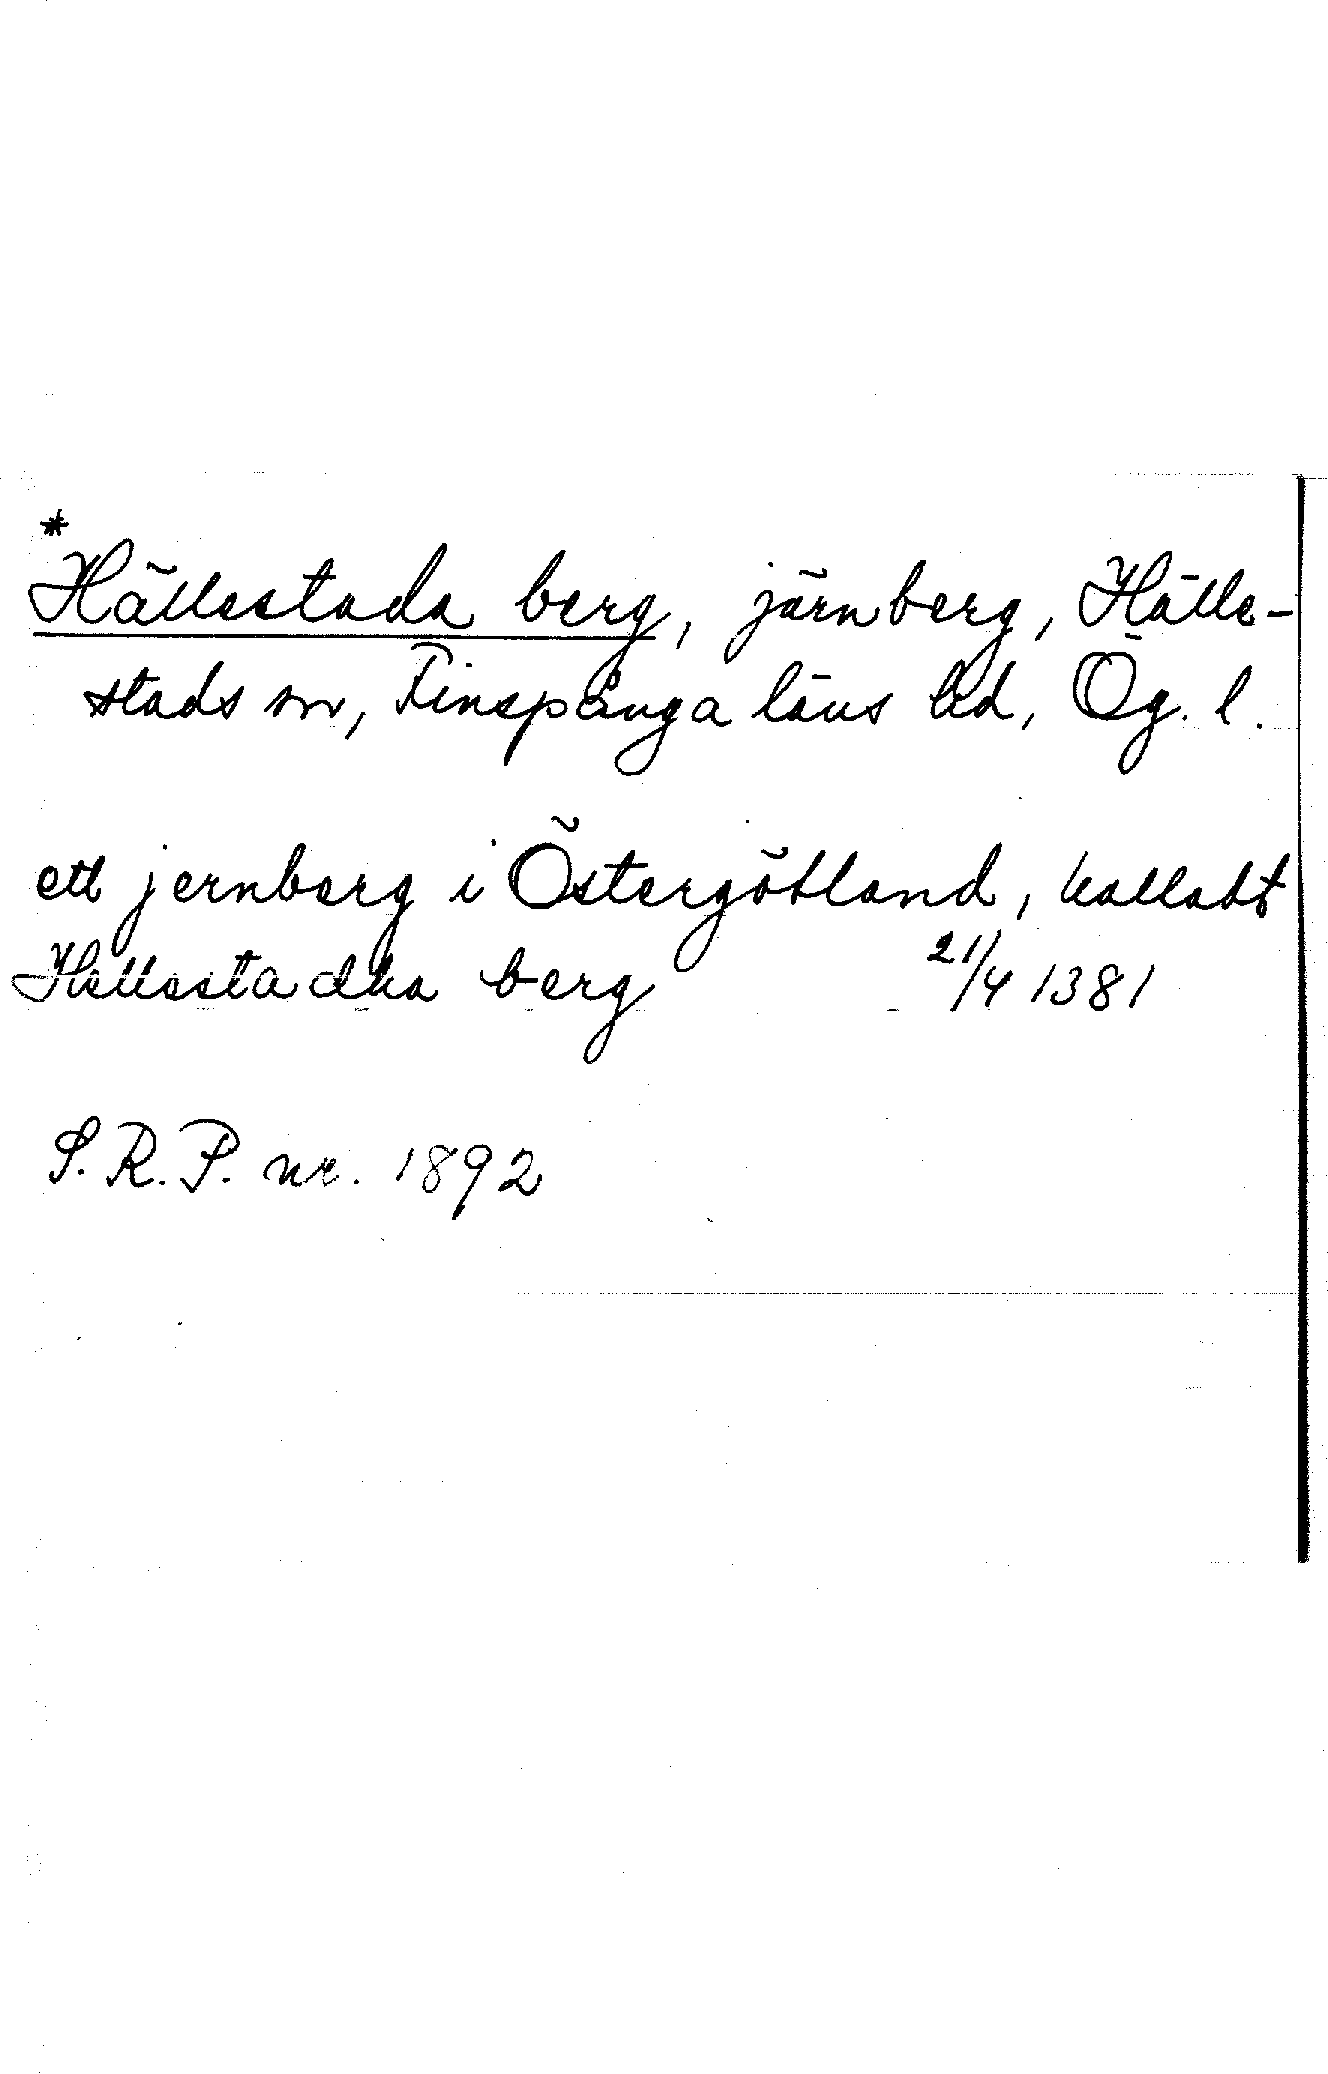 *
Hällestada berg, järnberg, Hälle-
stads sn, Finspånga läns hd, Ög. l.
ett jernberg i Östergötland, kalladt
Hellestadha berg 21/4 1381
S. R. P. nr. 1892